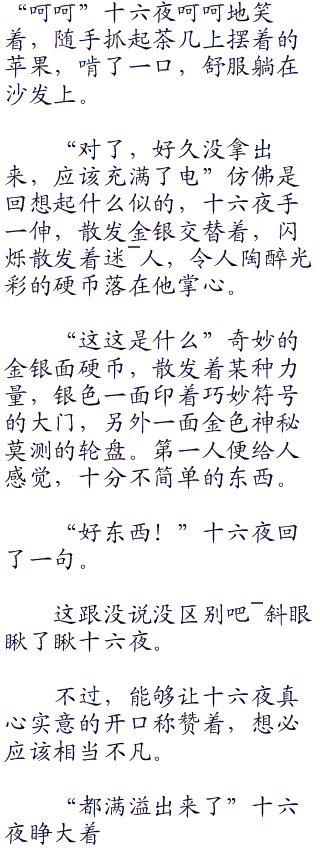 “呵呵”十六夜呵呵地笑
着，随手抓起茶几上摆着的
苹果，啃了一口，舒服躺在
沙发上。
“对了，好久没拿出
来，应该充满了电”仿佛是
回想起什么似的，十六夜手
一伸，散发金银交替着，闪
烁散发着迷¯人，令人陶醉光
彩的硬币落在他掌心。
“这这是什么”奇妙的
金银面硬币，散发着某种力
量，银色一面印着巧妙符号
的大门，另外一面金色神秘
莫测的轮盘。第一人便给人
感觉，十分不简单的东西。
“好东西！”十六夜回
了一句。
这跟没说没区别吧¯斜眼
瞅了瞅十六夜。
不过，能够让十六夜真
心实意的开口称赞着，想必
应该相当不凡。
“都满溢出来了”十六
夜睁大着